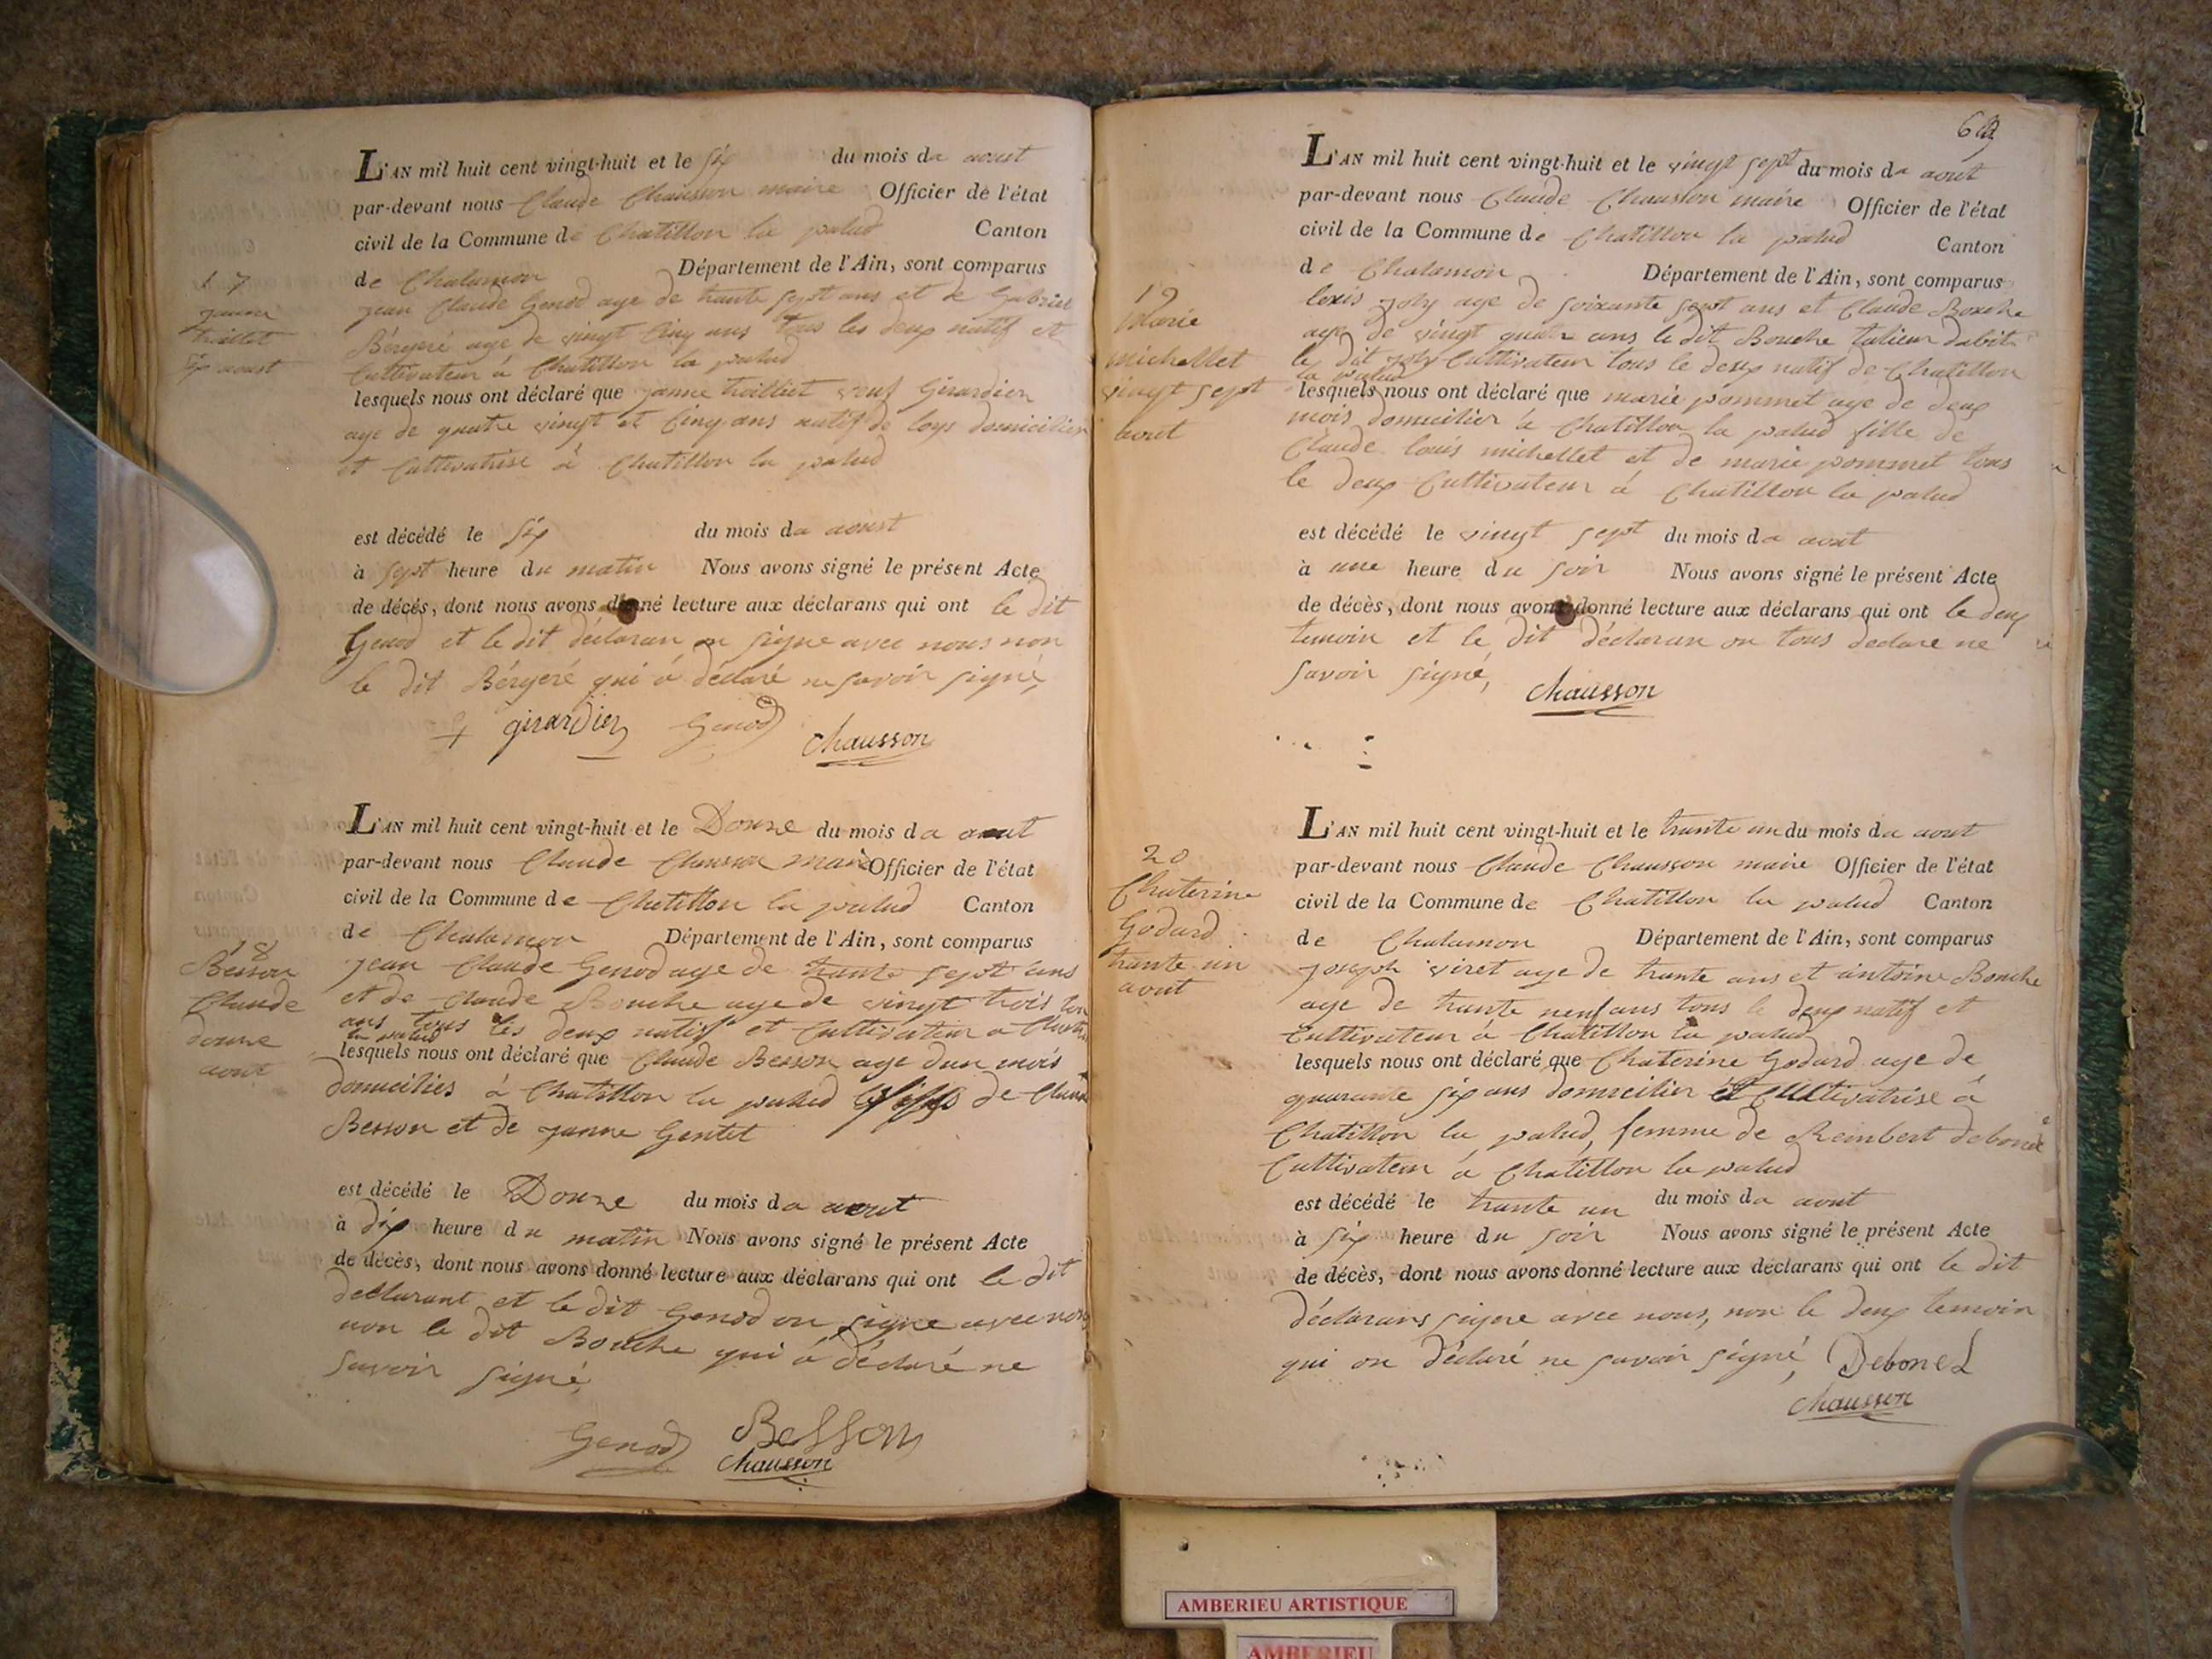 17
janne
trollet
six aoust
L'AN mil huit cent vingt-huit et le six du mois da aoust
par-devant nous Claude Chausson maire Officier de l'état
civil de la Commune de Chatillon la palud Canton
de Chalamon Département de l'Ain, sont comparus
jean Claude Genod age de trante sept ans et de Gabriel
Bérgeré age de vingt Cinq ans tous les deux natif et
Cultivateur à Chatillon la palud
lesquels nous ont déclaré que janne trolliet veuf Girardier
age de quatre vingt et Cinq ans natif de loys domicilier
et Cultivatrise à Chatillon la palud
est décédé le six du mois da aoust
à sept heure du matin Nous avons signé le présent Acte
de décès, dont nous avons donné lecture aux déclarans qui ont le dit
Genod et le dit déclaran on signe avec nous non
le dit Bérgeré qui à déclaré ne savoir signé,
girardier Genod Chausson
18
Besson
Claude
douze
aout
L'AN mil huit cent vingt-huit et le Douze du mois da aout
par-devant nous Claude Chausson maire Officier de l'état
civil de la Commune de Chatillon la palud Canton
de Chalamon Département de l'Ain, sont comparus
jean Claude Genod age de trante sept ans
et de Claude Bouche age de vingt trois
ans tous les deux natif et Cultivateur a
la palud
lesquels nous ont déclaré que Claude Besson age dun mois
domicilies à Chatillon la palud fils de
Besson et de janne Gentet
est décédé le Douze du mois da aout
à dix heure du matin Nous avons signé le présent Acte
de décès, dont nous avons donné lecture aux déclarans qui ont le dit
declarant et le dit Genod on signe avec nous
non le dit Bouche qui à déclaré ne
savoir signé,
Genod Besson
Chausson
69
19
Marie
michellet
vingt sept
aout
L'AN mil huit cent vingt-huit et le vingt sept du mois da aout
par-devant nous Claude Chausson maire Officier de l'état
civil de la Commune de Chatillon la palud Canton
de Chalamon Département de l'Ain, sont comparus
louis joly age de soixante sept ans et Claude Bouche
age de vingt quatre ans le dit Bouche talieur dabit
le dit joly Cultivateur tous le deux natif de Chatillon
la palud
lesquels nous ont déclaré que marie pommet age de deux
mois domicilier à Chatillon la palud fille de
Claude louis michellet et de marie pommet tous
le deux Cultivateur à Chatillon la palud
est décédé le vingt sept du mois da aout
à une heure du soir Nous avons signé le présent Acte
de décès, dont nous avons donné lecture aux déclarans qui ont le deux
temoin et le dit déclaran on tous declare ne
savoir signé,
Chausson
20
Chaterine
Godard
trante un
aout
L'AN mil huit cent vingt-huit et le trante un du mois da aout
par-devant nous Claude Chausson maire Officier de l'état
civil de la Commune de Chatillon la palud Canton
de Chalamon Département de l'Ain, sont comparus
joseph viret age de trante ans et antoine Bouche
age de trante neuf ans tous le deux natif et
Cultivateur à Chatillon la palud
lesquels nous ont déclaré que Chaterine Godard age de
quarante six ans domicilier et Cultivatrise à
Chatillon la palud, femme de Reimbert debone
Cultivateur à Chatillon la palud
est décédé le trante un du mois da aout
à six heure du soir Nous avons signé le présent Acte
de décès, dont nous avons donné lecture aux déclarans qui ont le dit
déclarans signe avec nous, non le deux temoin
qui on déclaré ne savoir signé, Debonel
Chausson
AMBERIEU ARTISTIQUE
AMBERIEU